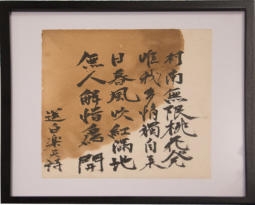 村南無限桃花発
唯我多情獨自来
日暮風吹紅満地
無人解惜為誰開
選白楽天詩